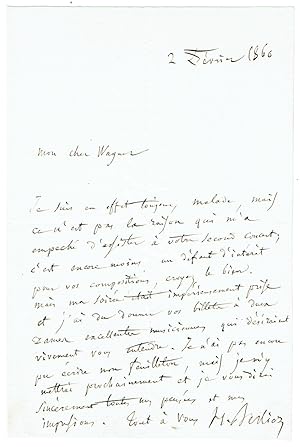 2 Février 1860
mon cher Wagner
Je suis en effet toujours malade, mais
ce n'est pas la raison qui m'a
empeché d'assister à votre second concert;
c'est encore moins un défaut d'intérêt
pour vos compositions, croyez le bien.
mais ma soirée était impérieusement prise
et j'ai du donner vos billets à deux
Dames excellentes musiciennes qui désiraient
vivement vous entendre. Je n'ai pas encore
pu écrire mon feuilleton, mais je m'y
mettrai prochainement et je vous dirai
sincèrement toutes mes pensées et mes
impressions. Tout à vous H. Berlioz